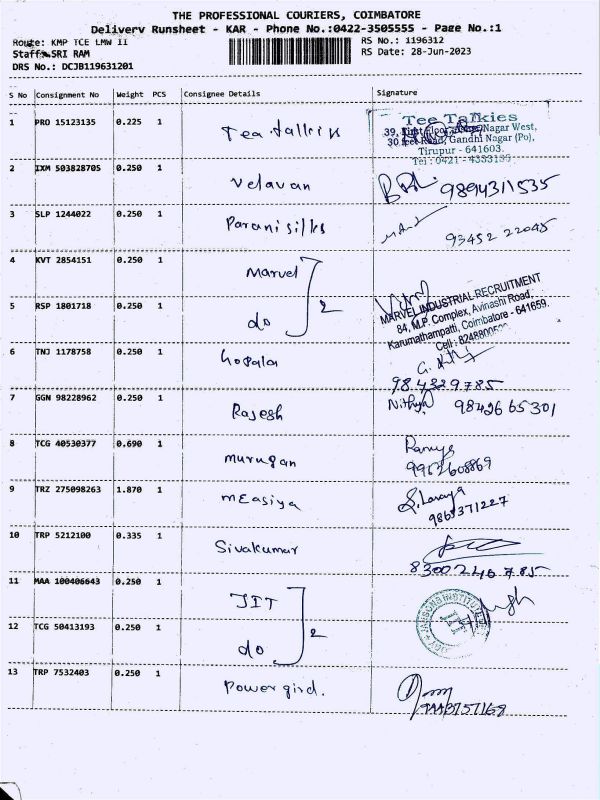 THE PROFESSIONAL COURIERS, COIMBATORE
Delivery Runsheet - KAR - Phone No.:0422-3505555 - Page No.:1
Route: KMP TCE LMW II
RS No.: 1196312
Staff: SRI RAM
RS Date: 28-Jun-2023
DRS No.: DCJB119631201
S No Consignment No Weight PCS Consignee Details Signature
1 PRO 15123135 0.225 1 Tea talkik
Tee Talkies
39, First Floor, Nagar West,
30 feet Road, Gandhi Nagar (Po),
Tirupur - 641603.
Tel : 0421 - 4333139
2 IXM 503828705 0.250 1 Velavan 9894311535
3 SLP 1244022 0.250 1 Parani silks 93452 22045
4 KVT 2854151 0.250 1 Marvel
5 RSP 1801718 0.250 1 do 2
MARVEL INDUSTRIAL RECRUITMENT
84, M.P. Complex, Avinashi Road,
Karumathampatti, Coimbatore - 641659.
Cell :
6 TNJ 1178758 0.250 1 Gopala
984329785
7 GGN 98228962 0.250 1 Rajesh Nithya 9842665301
8 TCG 40530377 0.690 1 Murugan Ramya
9962608869
9 TRZ 275098263 1.870 1 mEasiya
9861371227
10 TRP 5212100 0.335 1 Sivakumar
8300240785
11 MAA 100406643 0.250 1 JIT
12 TCG 50413193 0.250 1 do 2
13 TRP 7532403 0.250 1 Powergird.